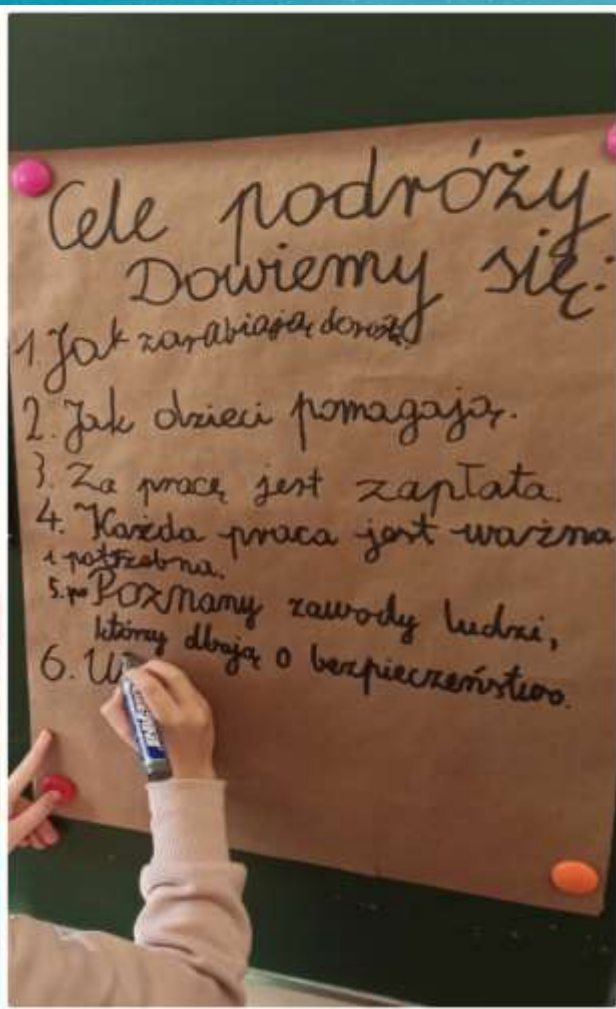 Cele podróży
Dowiemy się:
1. Jak zarabiają dorośli.
2. Jak dzieci pomagają.
3. Za pracę jest zapłata.
4. Każda praca jest ważna
i potrzebna.
5. po Poznamy zawody ludzi,
którzy dbają o bezpieczeństwo.
6. U